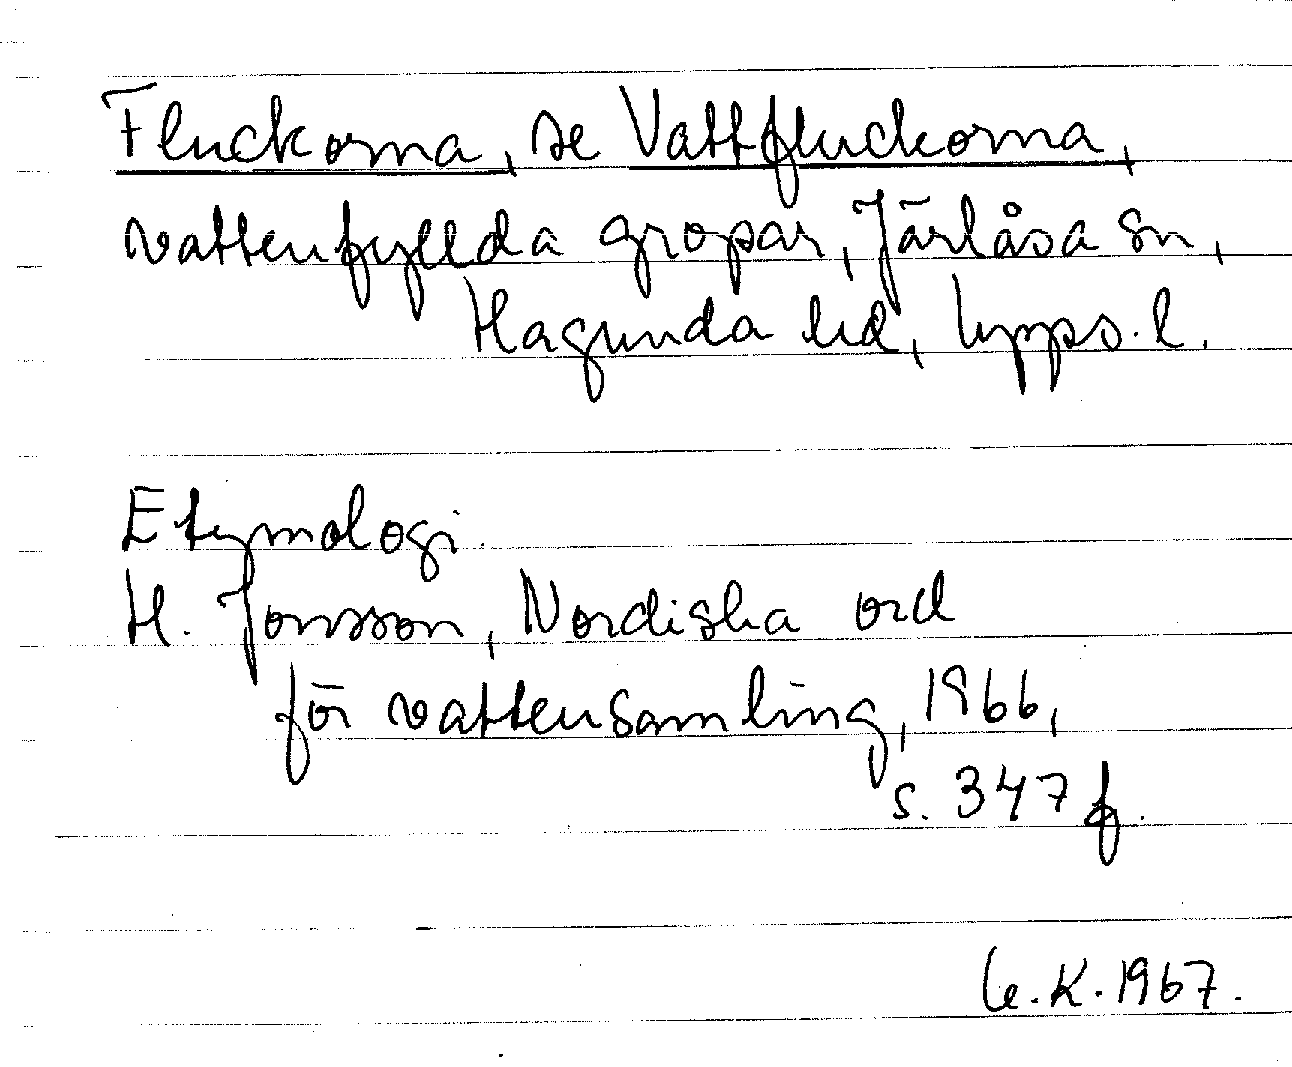 Fluckorna, se Vattfluckorna,
vattenfyllda gropar, Järlåsa sn,
Hagunda hd, Upps. l.
Etymologi.
H. Jonsson, Nordiska ord
för vattensamling, 1966,
s. 347 f.
K. 1967.